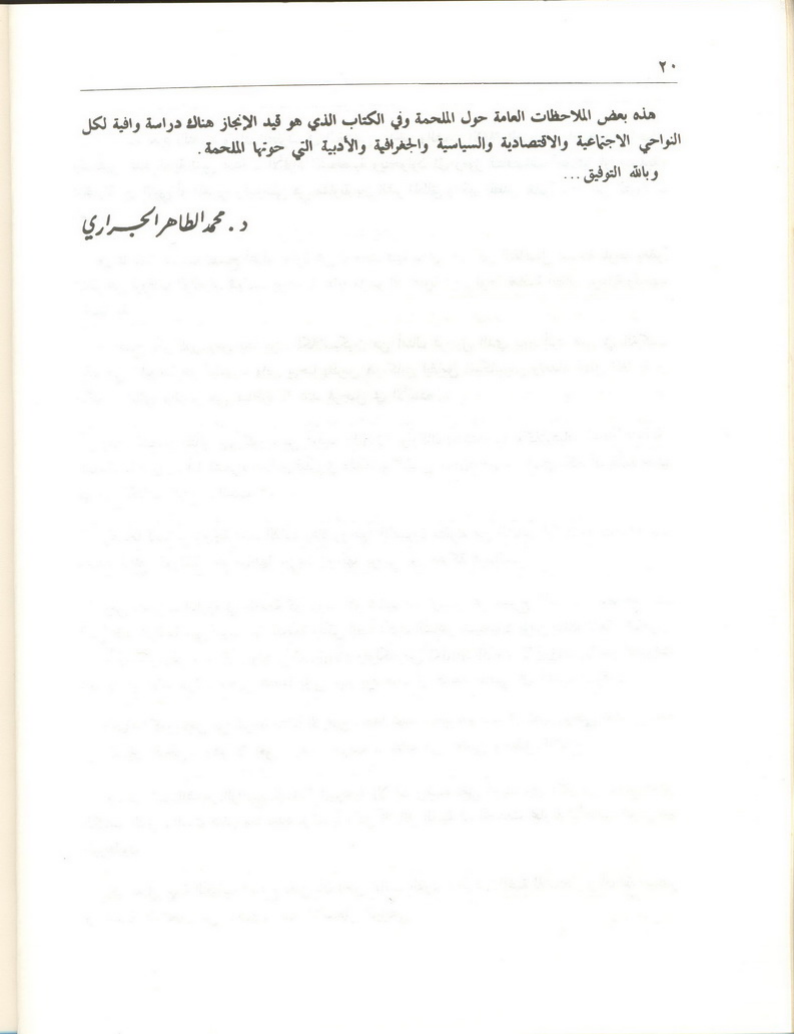 ٢٠
هذه بعض الملاحظات العامة حول الملحمة وفي الكتاب الذي هو قيد الإنجاز هناك دراسة وافية لكل
النواحي الاجتماعية والاقتصادية والسياسية والجغرافية والأدبية التي حوتها الملحمة.
وبالله التوفيق...
د. محمد الطاهر الجراري